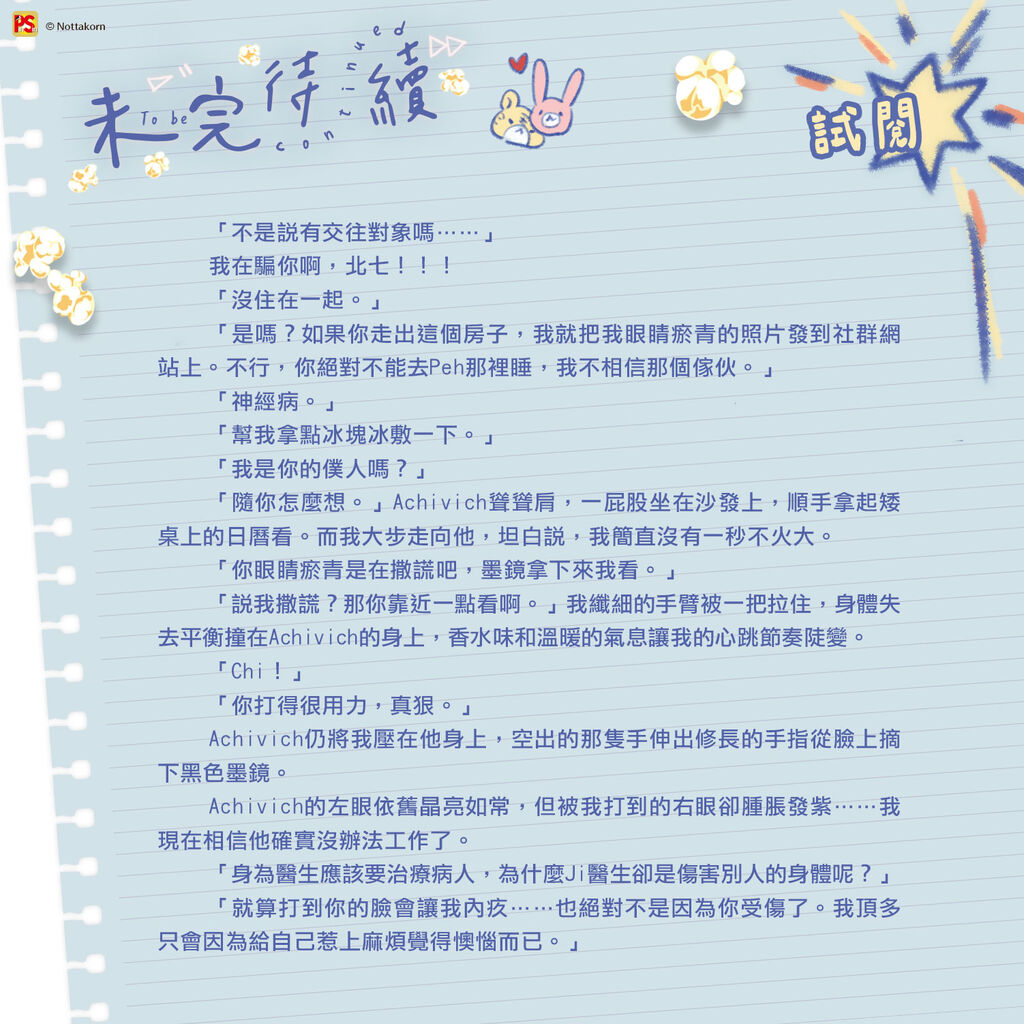 PS
© Nottakorn
未完待續
To be continued
試閱
「不是說有交往對象嗎……」
我在騙你啊，北七！！！
「沒住在一起。」
「是嗎？如果你走出這個房子，我就把我眼睛瘀青的照片發到社群網
站上。不行，你絕對不能去Peh那裡睡，我不相信那個傢伙。」
「神經病。」
「幫我拿點冰塊冰敷一下。」
「我是你的僕人嗎？」
「隨你怎麼想。」Achivich聳聳肩，一屁股坐在沙發上，順手拿起矮
桌上的日曆看。而我大步走向他，坦白說，我簡直沒有一秒不火大。
「你眼睛瘀青是在撒謊吧，墨鏡拿下來我看。」
「說我撒謊？那你靠近一點看啊。」我纖細的手臂被一把拉住，身體失
去平衡撞在Achivich的身上，香水味和溫暖的氣息讓我的心跳節奏陡變。
「Chi！」
「你打得很用力，真狠。」
Achivich仍將我壓在他身上，空出的那隻手伸出修長的手指從臉上摘
下黑色墨鏡。
Achivich的左眼依舊晶亮如常，但被我打到的右眼卻腫脹發紫……我
現在相信他確實沒辦法工作了。
「身為醫生應該要治療病人，為什麼Ji醫生卻是傷害別人的身體呢？」
「就算打到你的臉會讓我內疚……也絕對不是因為你受傷了。我頂多
只會因為給自己惹上麻煩覺得懊惱而已。」